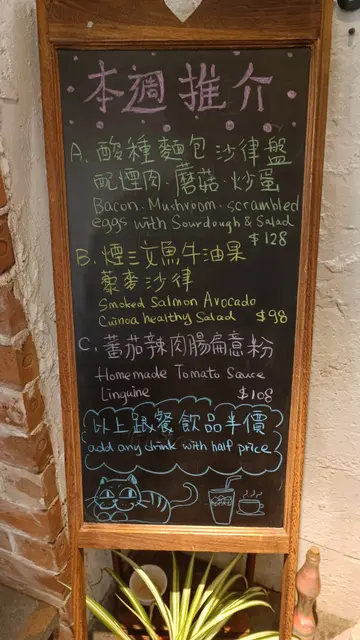 本週推介
A. 酸種麵包沙律盤
配煙肉·蘑菇·炒蛋
Bacon·Mushroom·scrambled
eggs with Sourdough & Salad
$128
B. 煙三文魚牛油果
藜麥沙律
Smoked Salmon Avocado
Cuinoa healthy Salad $98
C. 蕃茄辣肉腸扁意粉
Homemade Tomato Sauce
Linguine $108
以上跟餐飲品半價
add any drink with half price